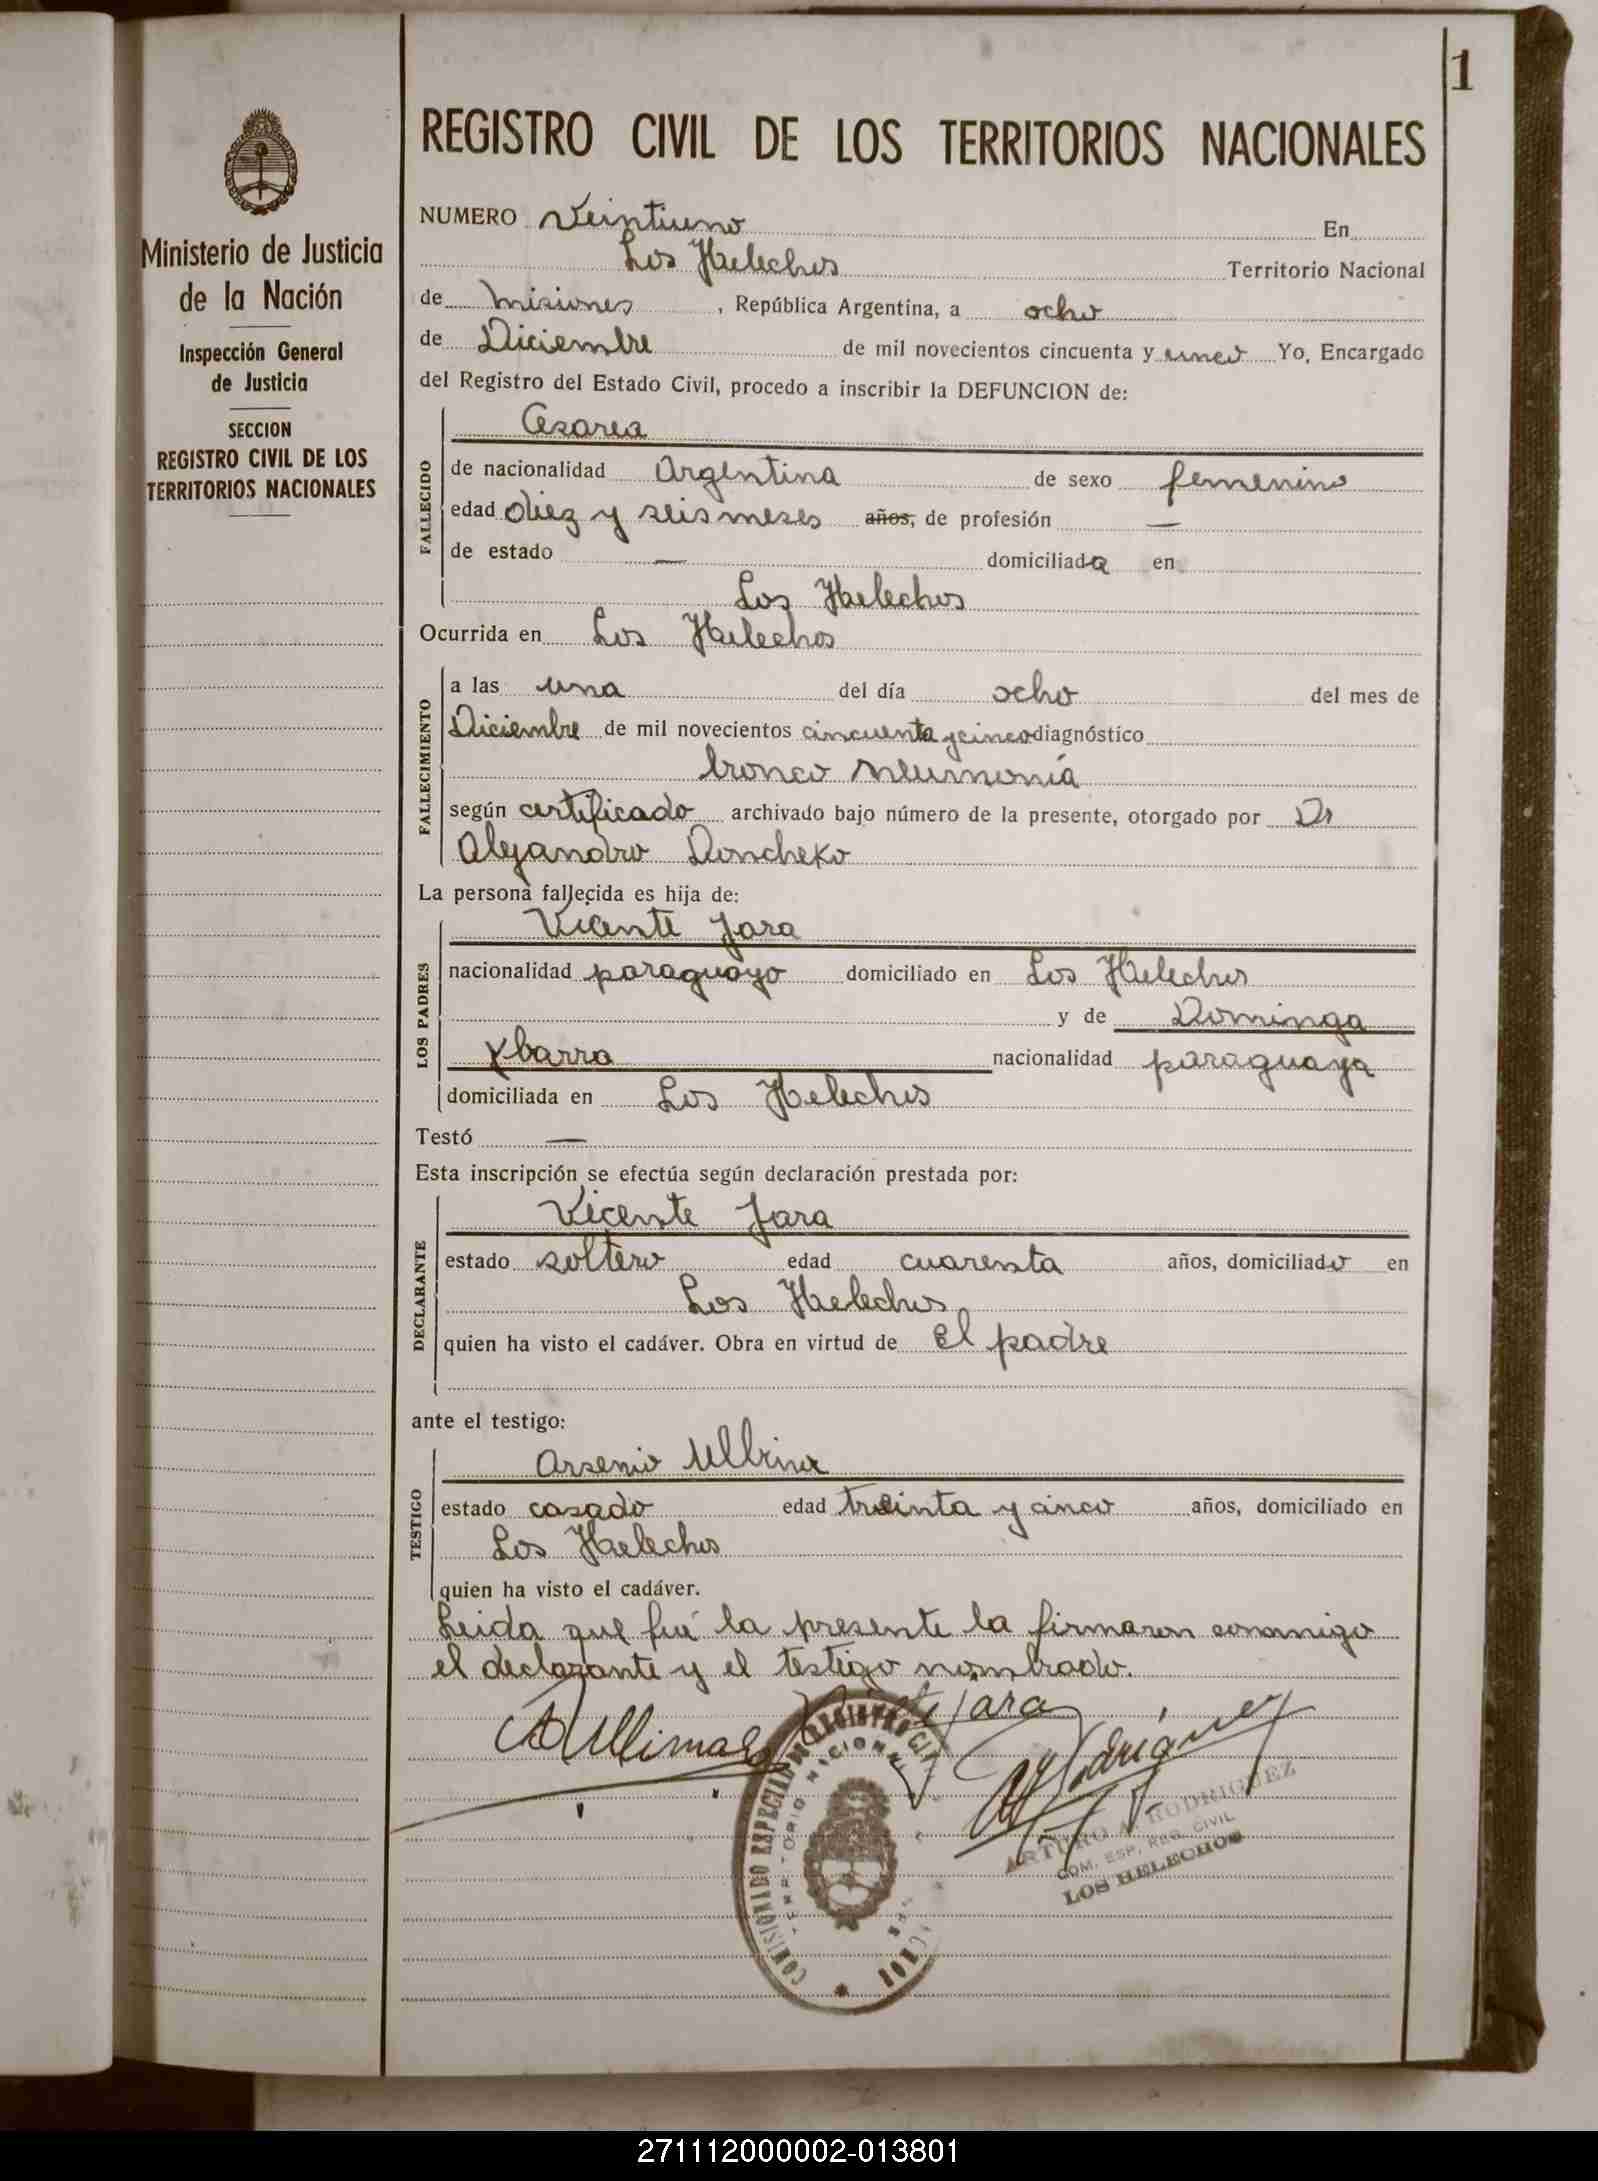 1
REGISTRO CIVIL DE LOS TERRITORIOS NACIONALES
Ministerio de Justicia
de la Nación
Inspección General
de Justicia
SECCION
REGISTRO CIVIL DE LOS
TERRITORIOS NACIONALES
NUMERO Veintiuno En
Los Helechos Territorio Nacional
de Misiones, República Argentina, a ocho
de Diciembre de mil novecientos cincuenta y Yo, Encargado
del Registro del Estado Civil, procedo a inscribir la DEFUNCION de:
FALLECIDO
Cesarea
de nacionalidad Argentina de sexo femenino
edad diez y seis meses años, de profesión —
de estado — domiciliada en
Los Helechos
Ocurrida en Los Helechos
FALLECIMIENTO
a las una del día ocho del mes de
Diciembre de mil novecientos cincuenta y cinco diagnóstico
bronco neumonía
según certificado archivado bajo número de la presente, otorgado por Dr
Alejandro Doncheko
La persona fallecida es hija de:
LOS PADRES
Vicente Jara
nacionalidad paraguayo domiciliado en Los Helechos
y de Dominga
Ybarra nacionalidad paraguaya
domiciliada en Los Helechos
Testó —
Esta inscripción se efectúa según declaración prestada por:
DECLARANTE
Vicente Jara
estado soltero edad cuarenta años, domiciliado en
Los Helechos
quien ha visto el cadáver. Obra en virtud de el padre
ante el testigo:
TESTIGO
Arsenio
estado casado edad treinta y cinco años, domiciliado en
Los Helechos
quien ha visto el cadáver.
Leida que fué la presente la firmaron conmigo
el declarante y el testigo nombrado.
Jara
COMISIONADO ESPECIAL DE REGISTRO CIVIL
TERRITORIO NACIONAL
ARTURO A. RODRIGUEZ
COM. ESP. REG. CIVIL
LOS HELECHOS
271112000002-013801